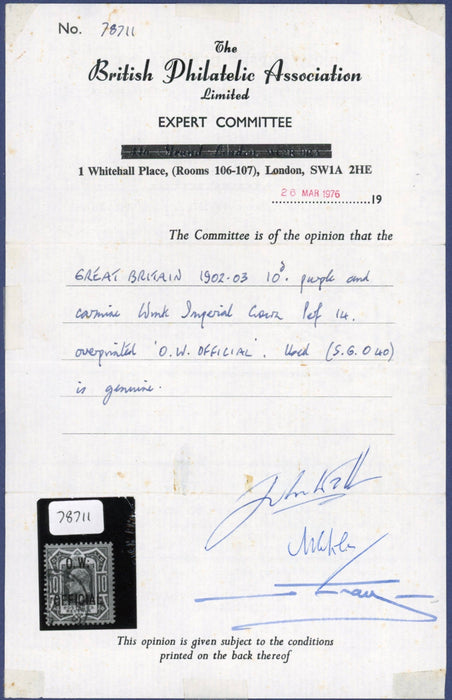 No. 78711
The
British Philatelic Association
Limited
EXPERT COMMITTEE
1 Whitehall Place, (Rooms 106-107), London, SW1A 2HE
26 MAR 1976
19
The Committee is of the opinion that the
GREAT BRITAIN 1902-03 10d. purple and
carmine Wmk Imperial Crown Perf 14.
overprinted 'O.W. OFFICIAL'. Used (S.G. O40)
is genuine.
78711
O.W.
10 10
OFFICIAL
This opinion is given subject to the conditions
printed on the back thereof